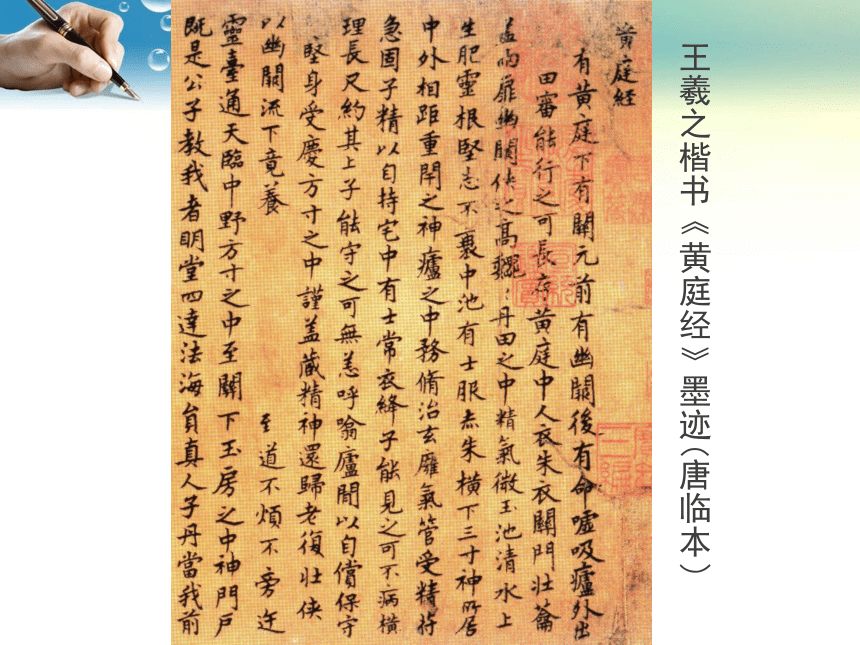 王羲之楷书《黄庭经》墨迹(唐临本)
黄庭经
有黄庭下有關元前有幽闕後有命噓吸廬外出
田審能行之可長存黄庭中人衣朱衣關門壮籥
盖両扉幽闕侠之高魏〻丹田之中精氣微玉池清水上
生肥靈根堅志不衰中池有士服赤朱横下三寸神所居
中外相距重閇之神廬之中務脩治玄廱氣管受精符
急固子精以自持宅中有士常衣絳子能見之可不病横
理長尺約其上子能守之可無恙呼噏廬間以自償保守
堅身受慶方寸之中謹盖藏精神還歸老復壮侠
以幽闕流下竟養 至道不煩不旁迕
靈臺通天臨中野方寸之中至關下玉房之中神門戸
既是公子教我者明堂四達法海員真人子丹當我前